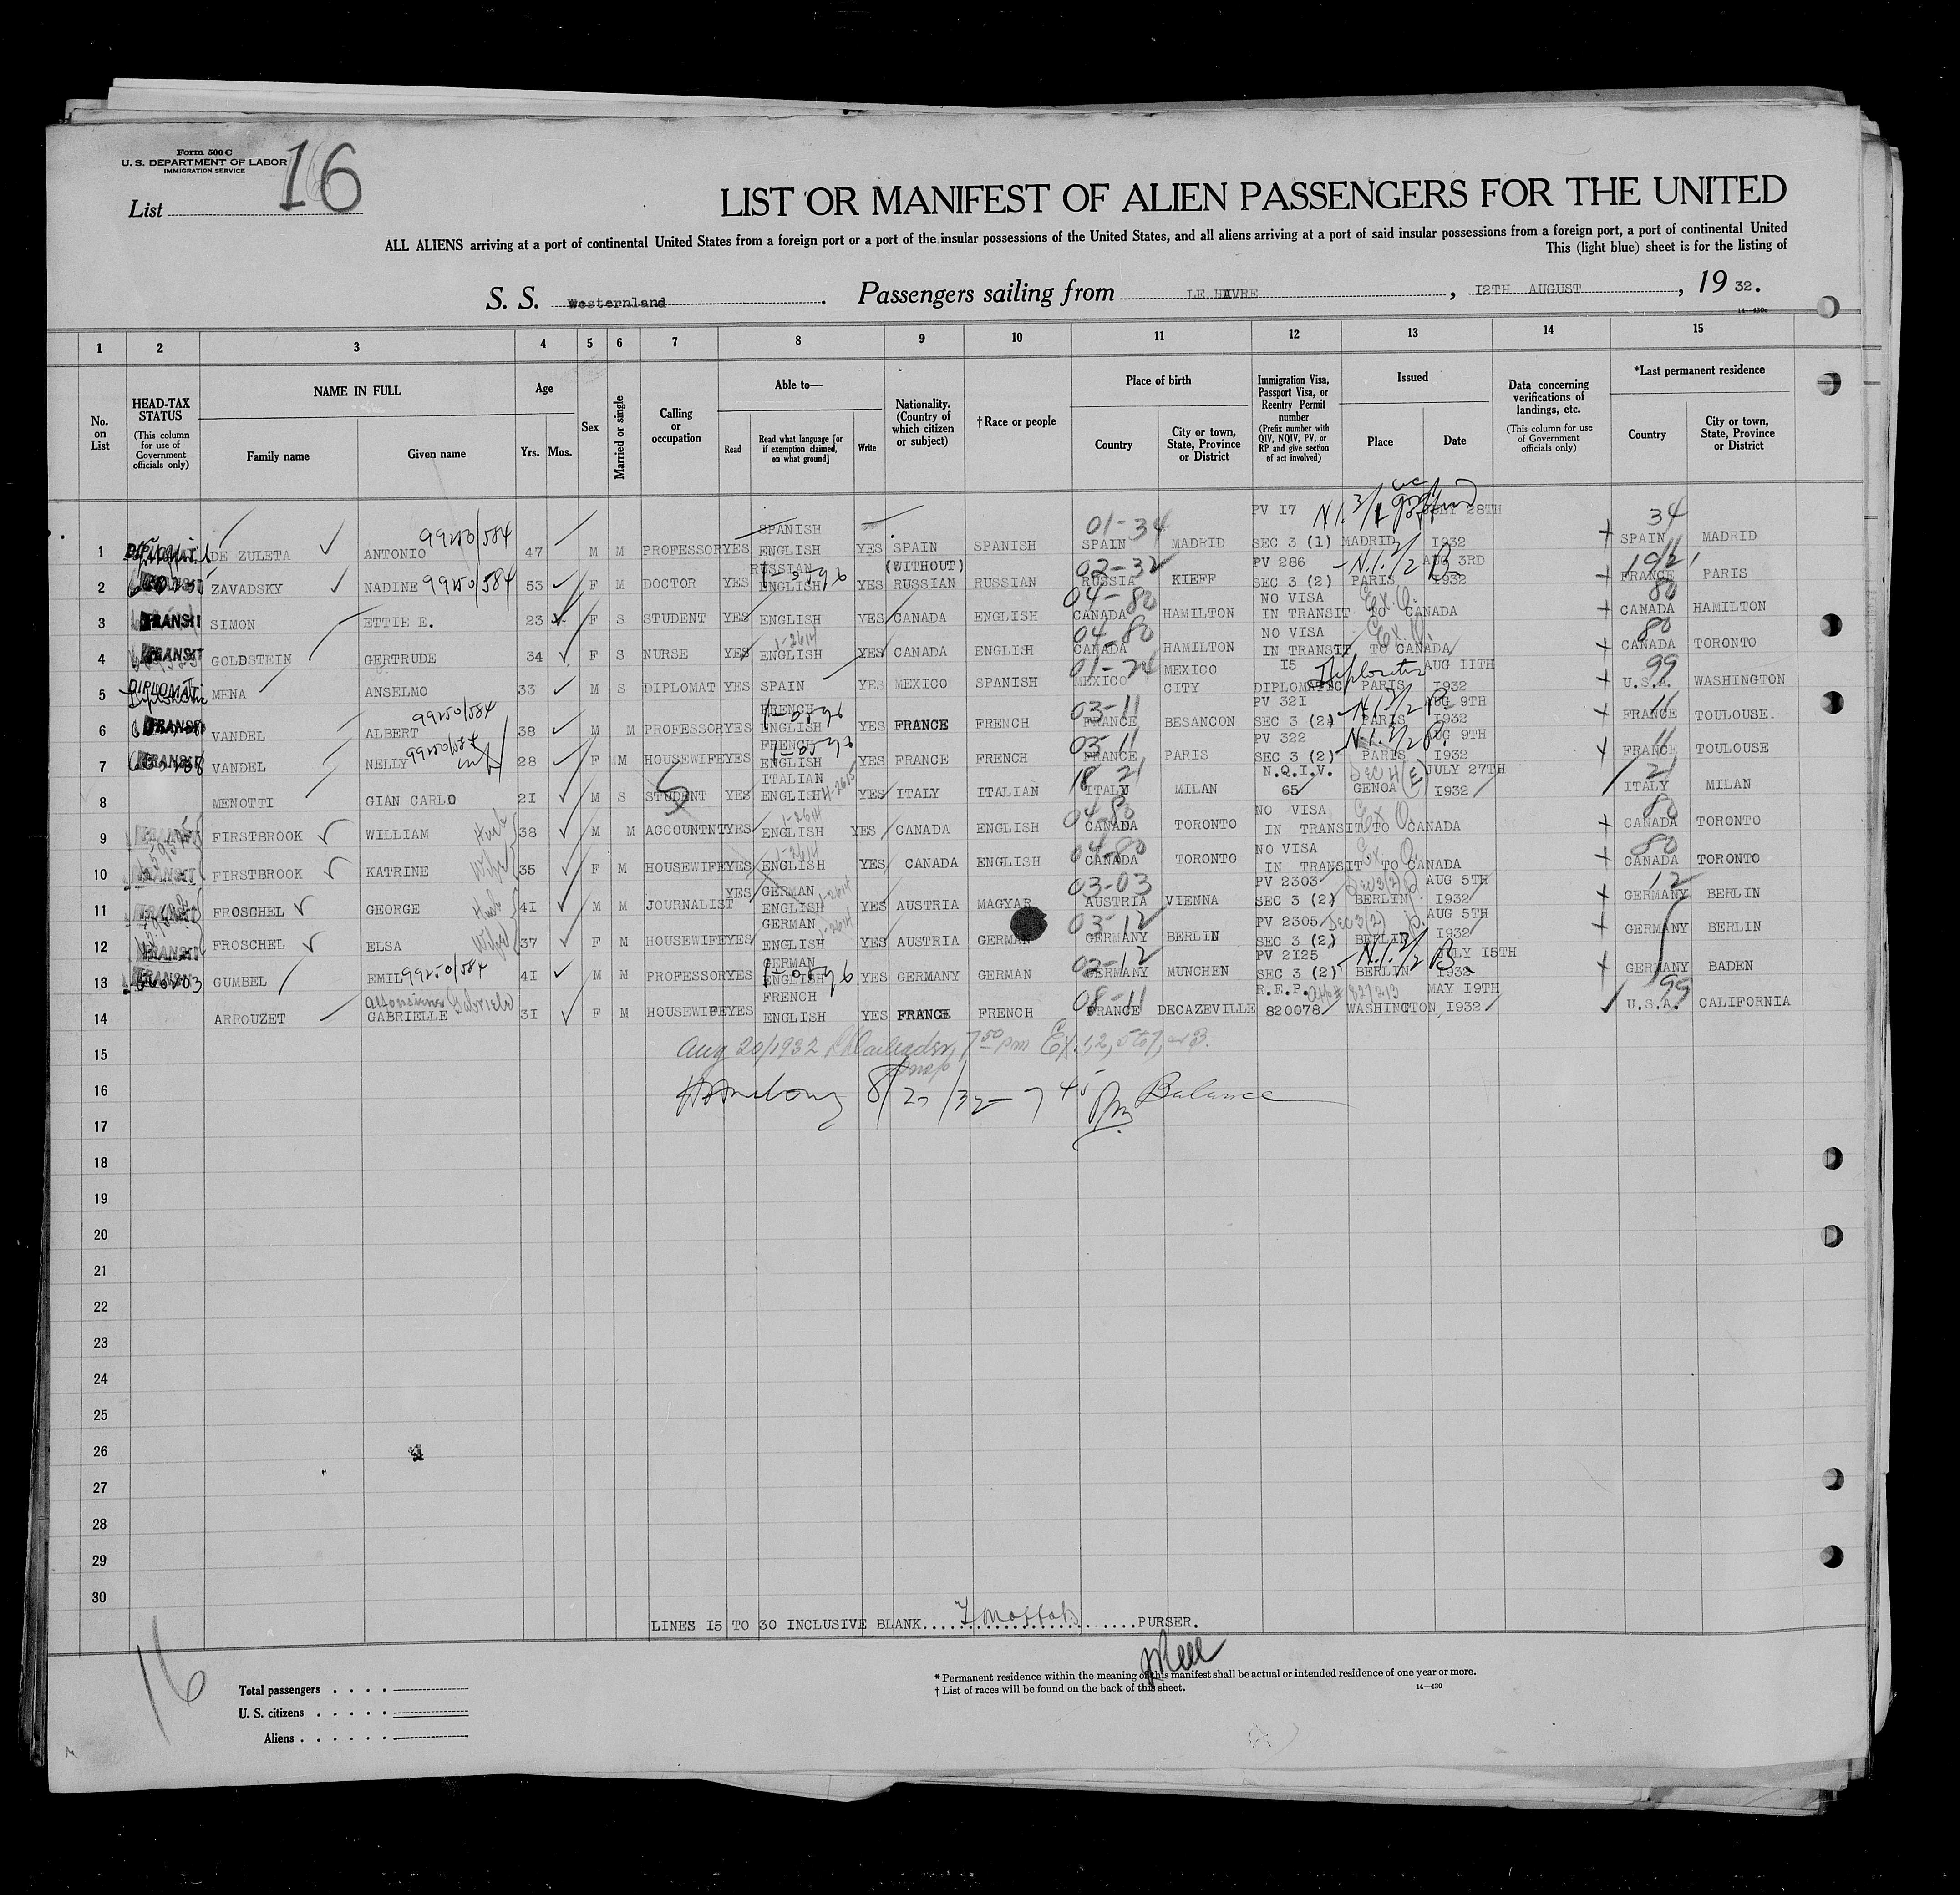 Form 500 C
U. S. DEPARTMENT OF LABOR
IMMIGRATION SERVICE
List 16
LIST OR MANIFEST OF ALIEN PASSENGERS FOR THE UNITED
ALL ALIENS arriving at a port of continental United States from a foreign port or a port of the insular possessions of the United States, and all aliens arriving at a port of said insular possessions from a foreign port, a port of continental United
This (light blue) sheet is for the listing of
S. S. Westernland. Passengers sailing from LE HAVRE, 12TH AUGUST, 19 32.
14—430c
1 2 3 4 5 6 7 8 9 10 11 12 13 14 15
No. on List
HEAD-TAX STATUS (This column for use of Government officials only)
NAME IN FULL Family name Given name
Age Yrs. Mos.
Sex
Married or single
Calling or occupation
Able to— Read Read what language [or if exemption claimed, on what ground] Write
Nationality. (Country of which citizen or subject)
†Race or people
Place of birth Country City or town, State, Province or District
Immigration Visa, Passport Visa, or Reentry Permit number (Prefix number with QIV, NQIV, PV, or RP and give section of act involved)
Issued Place Date
Data concerning verifications of landings, etc. (This column for use of Government officials only)
*Last permanent residence Country City or town, State, Province or District
1 DIPLOMAT DE ZULETA ANTONIO 99250/584 47 M M PROFESSOR YES SPANISH ENGLISH YES SPAIN SPANISH 01-34 SPAIN MADRID PV 17 SEC 3 (1) MADRID JULY 28TH 1932 34 SPAIN MADRID
2 ZAVADSKY NADINE 99250/584 53 F M DOCTOR YES RUSSIAN ENGLISH YES (WITHOUT) RUSSIAN RUSSIAN 02-32 RUSSIA KIEFF PV 286 SEC 3 (2) PARIS N.I. 3/2 AUG 3RD 1932 FRANCE PARIS
3 TRANSIT SIMON ETTIE E. 23 F S STUDENT YES ENGLISH YES CANADA ENGLISH 04-80 CANADA HAMILTON NO VISA IN TRANSIT TO CANADA Ex. O. 80 CANADA HAMILTON
4 TRANSIT GOLDSTEIN GERTRUDE 34 F S NURSE YES 1-2614 ENGLISH YES CANADA ENGLISH 04 80 CANADA HAMILTON NO VISA IN TRANSIT TO CANADA Ex. O. 80 CANADA TORONTO
5 DIPLOMAT Diplomatic MENA ANSELMO 33 M S DIPLOMAT YES SPAIN YES MEXICO SPANISH 01-24 MEXICO MEXICO CITY 15 DIPLOMATIC Diplomatic PARIS AUG 11TH 1932 99 U.S.A. WASHINGTON
6 TRANSIT VANDEL ALBERT 99250/584 38 M M PROFESSOR YES FRENCH ENGLISH YES FRANCE FRENCH 03-11 FRANCE BESANCON PV 321 SEC 3 (2) N.I. 3/2 PARIS AUG 9TH 1932 11 FRANCE TOULOUSE.
7 TRANSIT VANDEL NELLY 99250/584 28 F M HOUSEWIFE YES FRENCH ENGLISH YES FRANCE FRENCH 03-11 FRANCE PARIS PV 322 SEC 3 (2) N.I. 3/2 PARIS AUG 9TH 1932 11 FRANCE TOULOUSE
8 MENOTTI GIAN CARLO 21 M S STUDENT YES ITALIAN ENGLISH 4-2615 YES ITALY ITALIAN 18 21 ITALY MILAN N.Q.I.V. 65 GENOA Sec 4 (E) JULY 27TH 1932 21 ITALY MILAN
9 FIRSTBROOK WILLIAM Husb 38 M M ACCOUNTNT YES 1-2614 ENGLISH YES CANADA ENGLISH 04-80 CANADA TORONTO NO VISA IN TRANSIT TO CANADA Ex O. 80 CANADA TORONTO
10 FIRSTBROOK KATRINE Wife 35 F M HOUSEWIFE YES 1-2614 ENGLISH YES CANADA ENGLISH 04-80 CANADA TORONTO NO VISA IN TRANSIT TO CANADA Ex O. 80 CANADA TORONTO
11 FROSCHEL GEORGE Husb 41 M M JOURNALIST YES GERMAN ENGLISH 1-2614 YES AUSTRIA MAGYAR 03-03 AUSTRIA VIENNA PV 2303 SEC 3 (2) Sec 3(2) BERLIN AUG 5TH 1932 12 GERMANY BERLIN
12 TRANSIT FROSCHEL ELSA Wife 37 F M HOUSEWIFE YES GERMAN ENGLISH 1-2614 YES AUSTRIA GERMAN 03-12 GERMANY BERLIN PV 2305 SEC 3 (2) Sec 3(2) BERLIN AUG 5TH 1932 GERMANY BERLIN
13 TRANSIT GUMBEL EMIL 99250/584 41 M M PROFESSOR YES GERMAN ENGLISH YES GERMANY GERMAN 02-12 GERMANY MUNCHEN PV 2125 SEC 3 (2) N.I. 3/2 BERLIN JULY 15TH 1932 GERMANY BADEN
14 ARROUZET GABRIELLE 31 F M HOUSEWIFE YES FRENCH ENGLISH YES FRANCE FRENCH 08-11 FRANCE DECAZEVILLE R.E.P. 820078 WASHINGTON MAY 19TH 1932 99 U.S.A. CALIFORNIA
15 Aug 20/1932 7 50 pm Ex. 1, 2, 5 to 7,
16 8/20/32 — 7 45 Pm Balance
17
18
19
20
21
22
23
24
25
26
27
28
29
30
LINES 15 TO 30 INCLUSIVE BLANK PURSER.
16
Total passengers
U. S. citizens
Aliens
* Permanent residence within the meaning of this manifest shall be actual or intended residence of one year or more.
† List of races will be found on the back of this sheet.
14—430